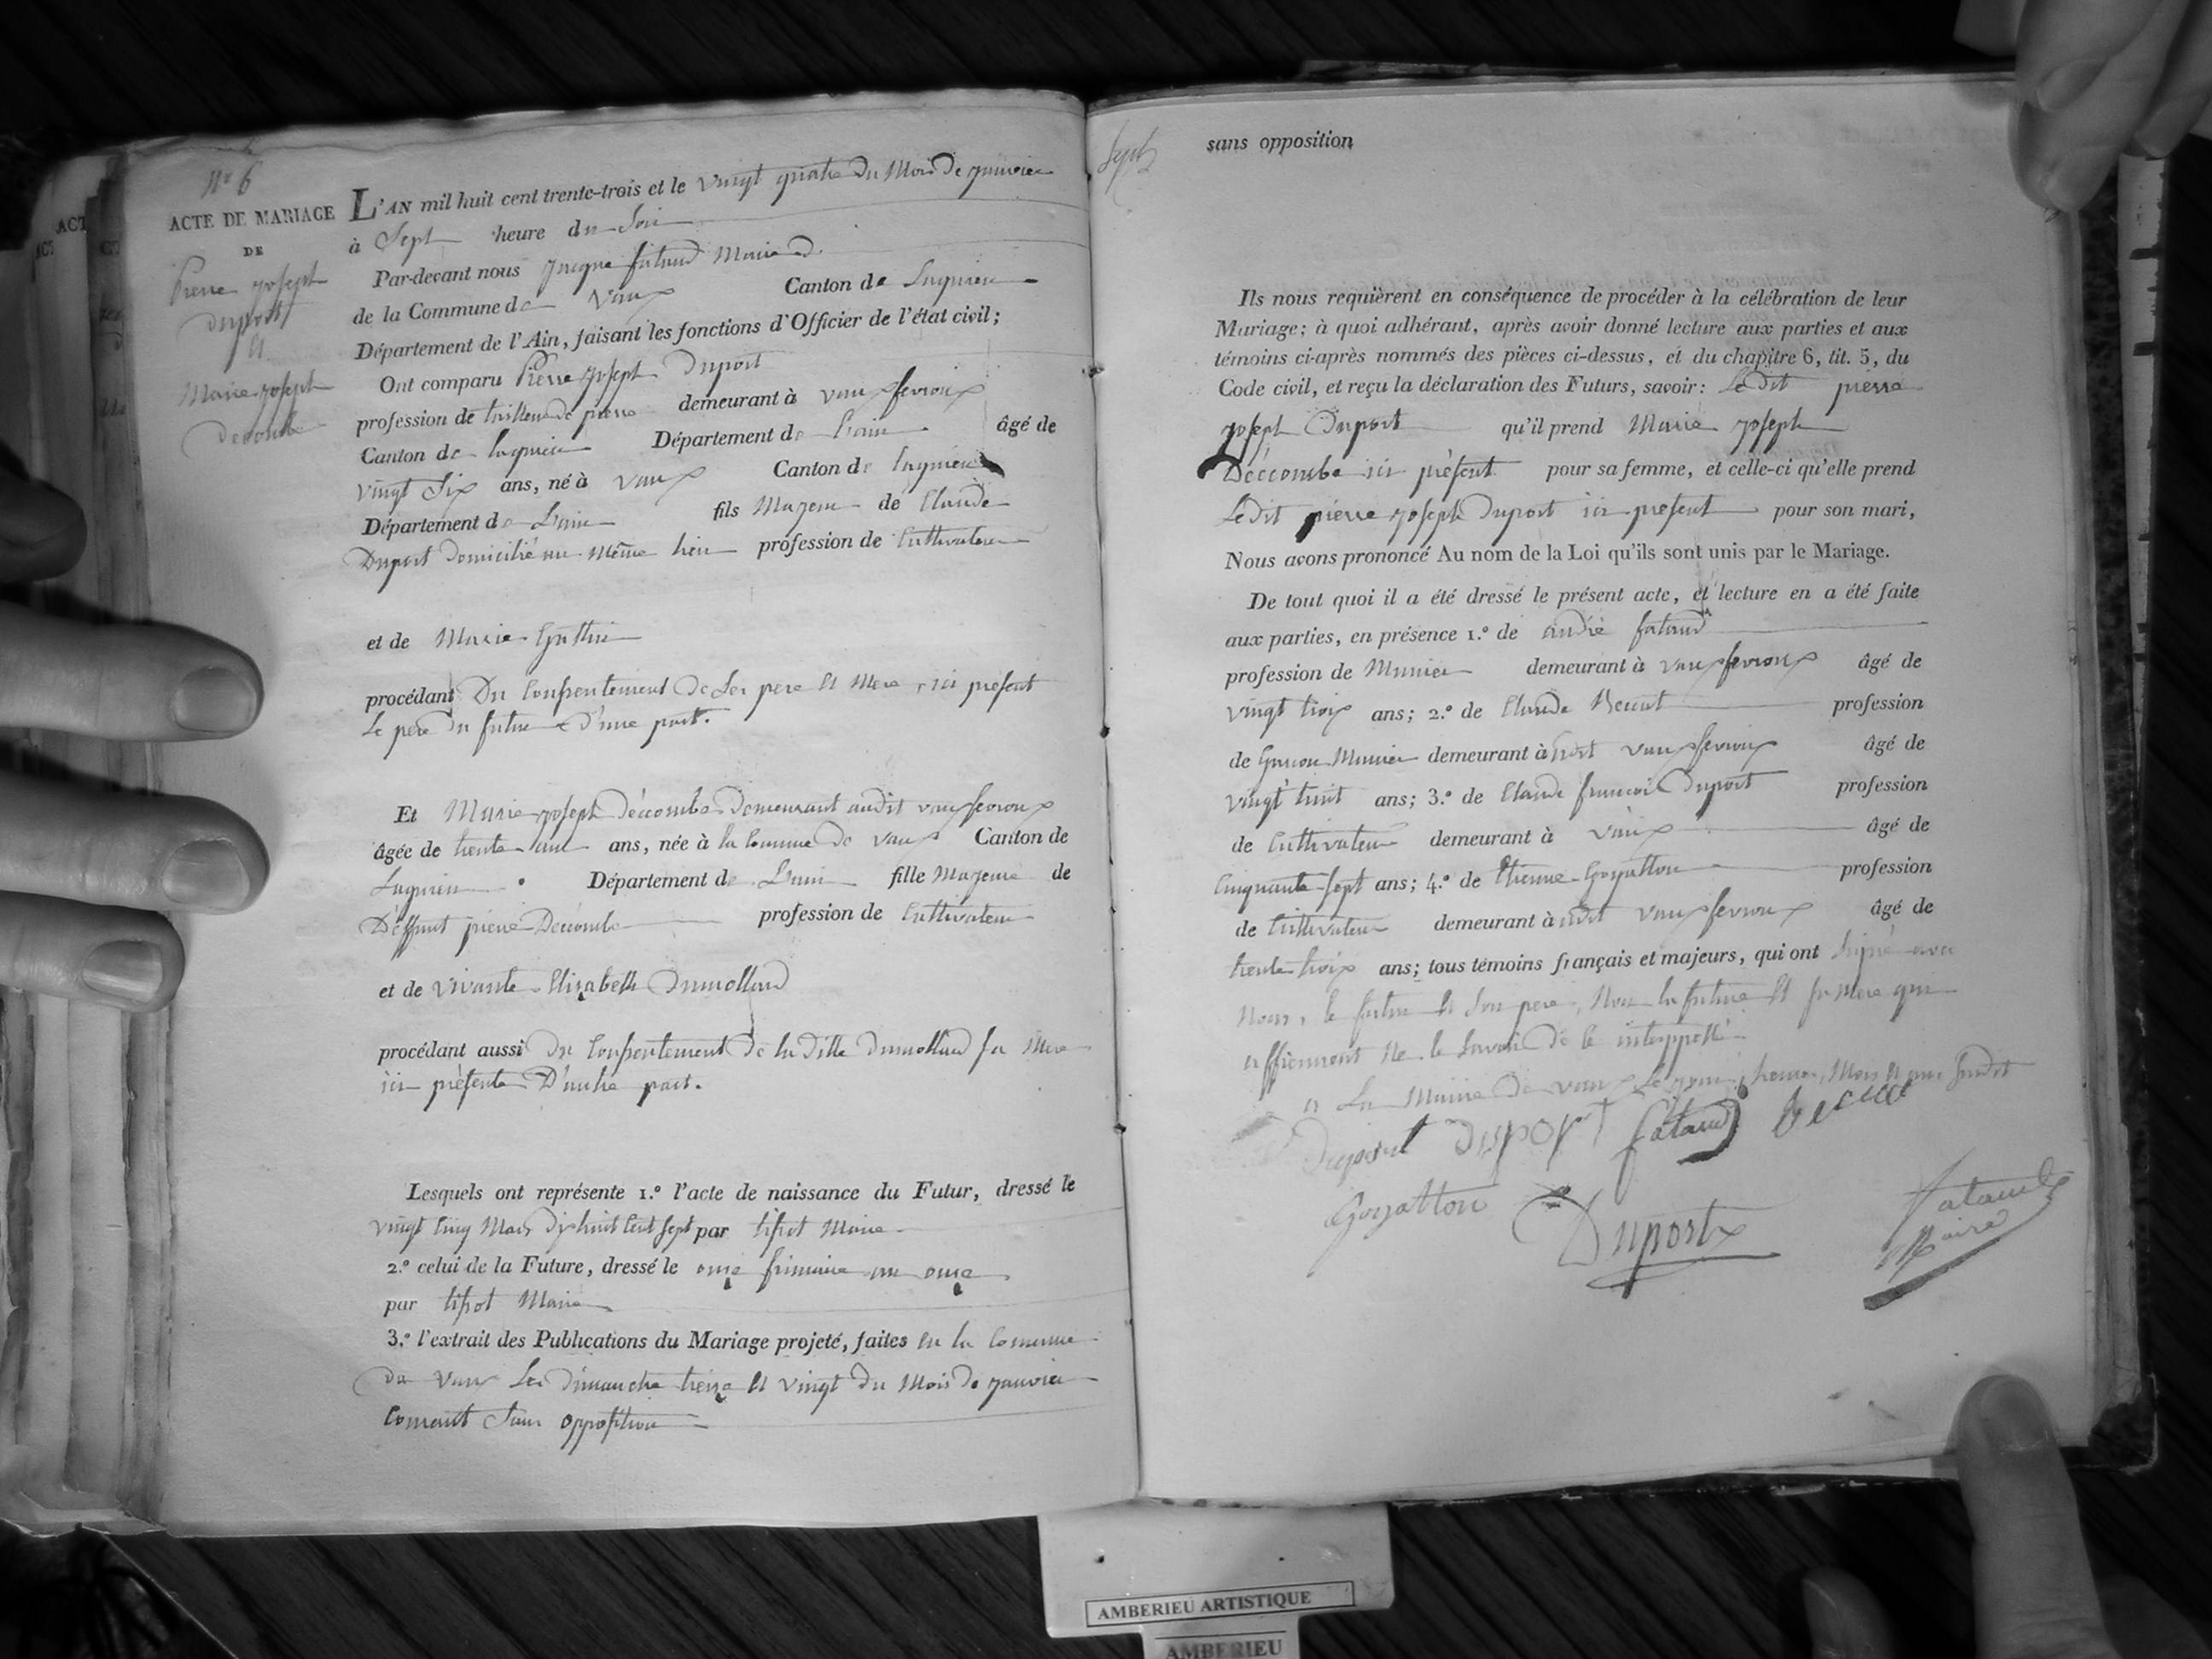 N° 6
ACTE DE MARIAGE
DE
Pierre joseph
duport
Et
Marie joseph
decombe
L'AN mil huit cent trente-trois et le vingt quatre du Mois de janvier
à Sept heure du Soir
Par-devant nous Jacque fataud Maire
de la Commune de Vaux Canton de Lagnieu
Département de l'Ain, faisant les fonctions d'Officier de l'état civil;
Ont comparu Pierre joseph Duport
profession de tailleur de pierre demeurant à vaux fevroux
Canton de lagnieu Département de Lain âgé de
vingt Six ans, né à vaux Canton de lagnieu
Département de Lain fils Majeur de Claude
Duport domicilié au même lieu profession de Cultivateur
et de Marie
procédant Du Consentement de Ses pere Et Mere, ici présent
Le pere du futur D'une part.
Et Marie joseph déccombe demeurant audit vaux fevroux
âgée de trente ans, née à la Commune de vaux Canton de
Lagnieu Département de Lain fille Majeure de
Déffunt pierre Deccombe profession de Cultivateur
et de vivante Elizabeth Dumollard
procédant aussi du Consentement de la ditte dumollard sa Mere
ici présente D'autre part.
Lesquels ont représente 1.° l'acte de naissance du Futur, dressé le
vingt Cinq Mars dixhuit Cent Sept par tissot Maire
2.° celui de la Future, dressé le onze frimaire an onze
par tissot Maire
3.° l'extrait des Publications du Mariage projeté, faites en la Commune
de vaux Les dimanche treize Et vingt du Mois de janvier
Courant Sans opposition
Sept
sans opposition
Ils nous requièrent en conséquence de procéder à la célébration de leur
Mariage; à quoi adhérant, après avoir donné lecture aux parties et aux
témoins ci-après nommés des pièces ci-dessus, et du chapitre 6, tit. 5, du
Code civil, et reçu la déclaration des Futurs, savoir: Le dit pierre
joseph Duport qu'il prend Marie joseph
Déccombe ici présent pour sa femme, et celle-ci qu'elle prend
Ledit pierre joseph Duport ici présent pour son mari,
Nous avons prononcé Au nom de la Loi qu'ils sont unis par le Mariage.
De tout quoi il a été dressé le présent acte, et lecture en a été faite
aux parties, en présence 1.° de andré fataud
profession de Munier demeurant à vaux fevroux âgé de
vingt troix ans; 2.° de Claude profession
de Garcon Munier demeurant à udit vaux fevroux âgé de
vingt huit ans; 3.° de Claude francois Duport profession
de Cultivateur demeurant à vaux âgé de
Cinquante sept ans; 4.° de Etienne Goyatton profession
de Cultivateur demeurant à udit vaux fevroux âgé de
trente troix ans; tous témoins français et majeurs, qui ont Signé avec
Nous, le futur Et Son pere, Non la future Et sa Mere qui
affirmont Ne le Savoir de ce interppellé
a La Mairie de vaux Les jour, heure, Mois Et an Susdit
Duport Duport fataud
Goyatton Duport Fataud
Maire
AMBERIEU ARTISTIQUE
AMBERIEU